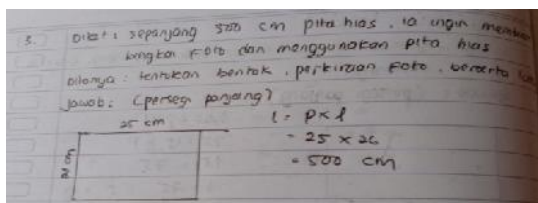 3. Diket : sepanjang 500 cm pita hias, ia ingin
bingkai Foto dan menggunakan pita hias
Ditanya : tentukan bentuk, perkiraan Foto, beserta
Jawab : (persegi panjang)
25 cm
20 cm
L = p x l
= 25 x 20
= 500 cm